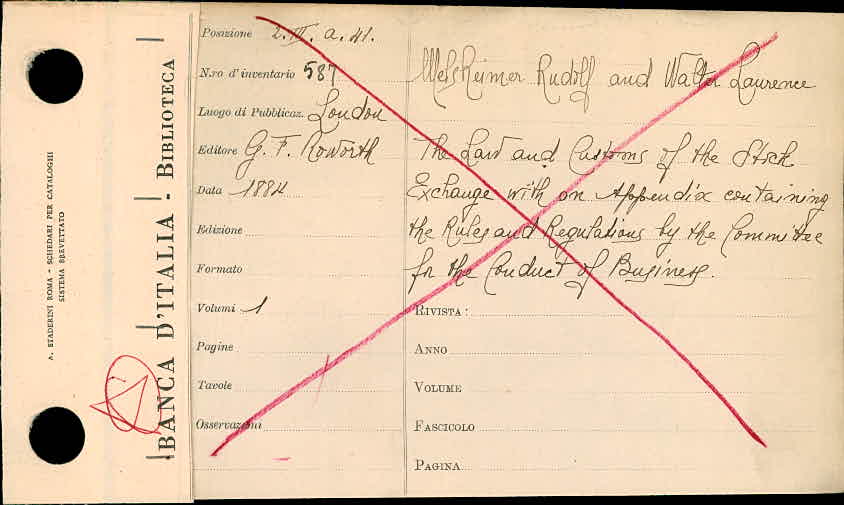 A. STADERINI ROMA - SCHEDARI PER CATALOGHI
SISTEMA BREVETTATO
BANCA D'ITALIA - BIBLIOTECA
Posizione 2. III. a. 41.
N.ro d'inventario 587
Luogo di Pubblicaz. London
Editore G. F. Roworth
Data 1884
Edizione
Formato
Volumi 1
Pagine
Tavole
Osservazioni
Melsheimer Rudolf and Walter Laurence
The Law and Customs of the Stock
Exchange with an Appendix containing
the Rules and Regulations by the Committee
for the Conduct of Business.
RIVISTA:
ANNO
VOLUME
FASCICOLO
PAGINA